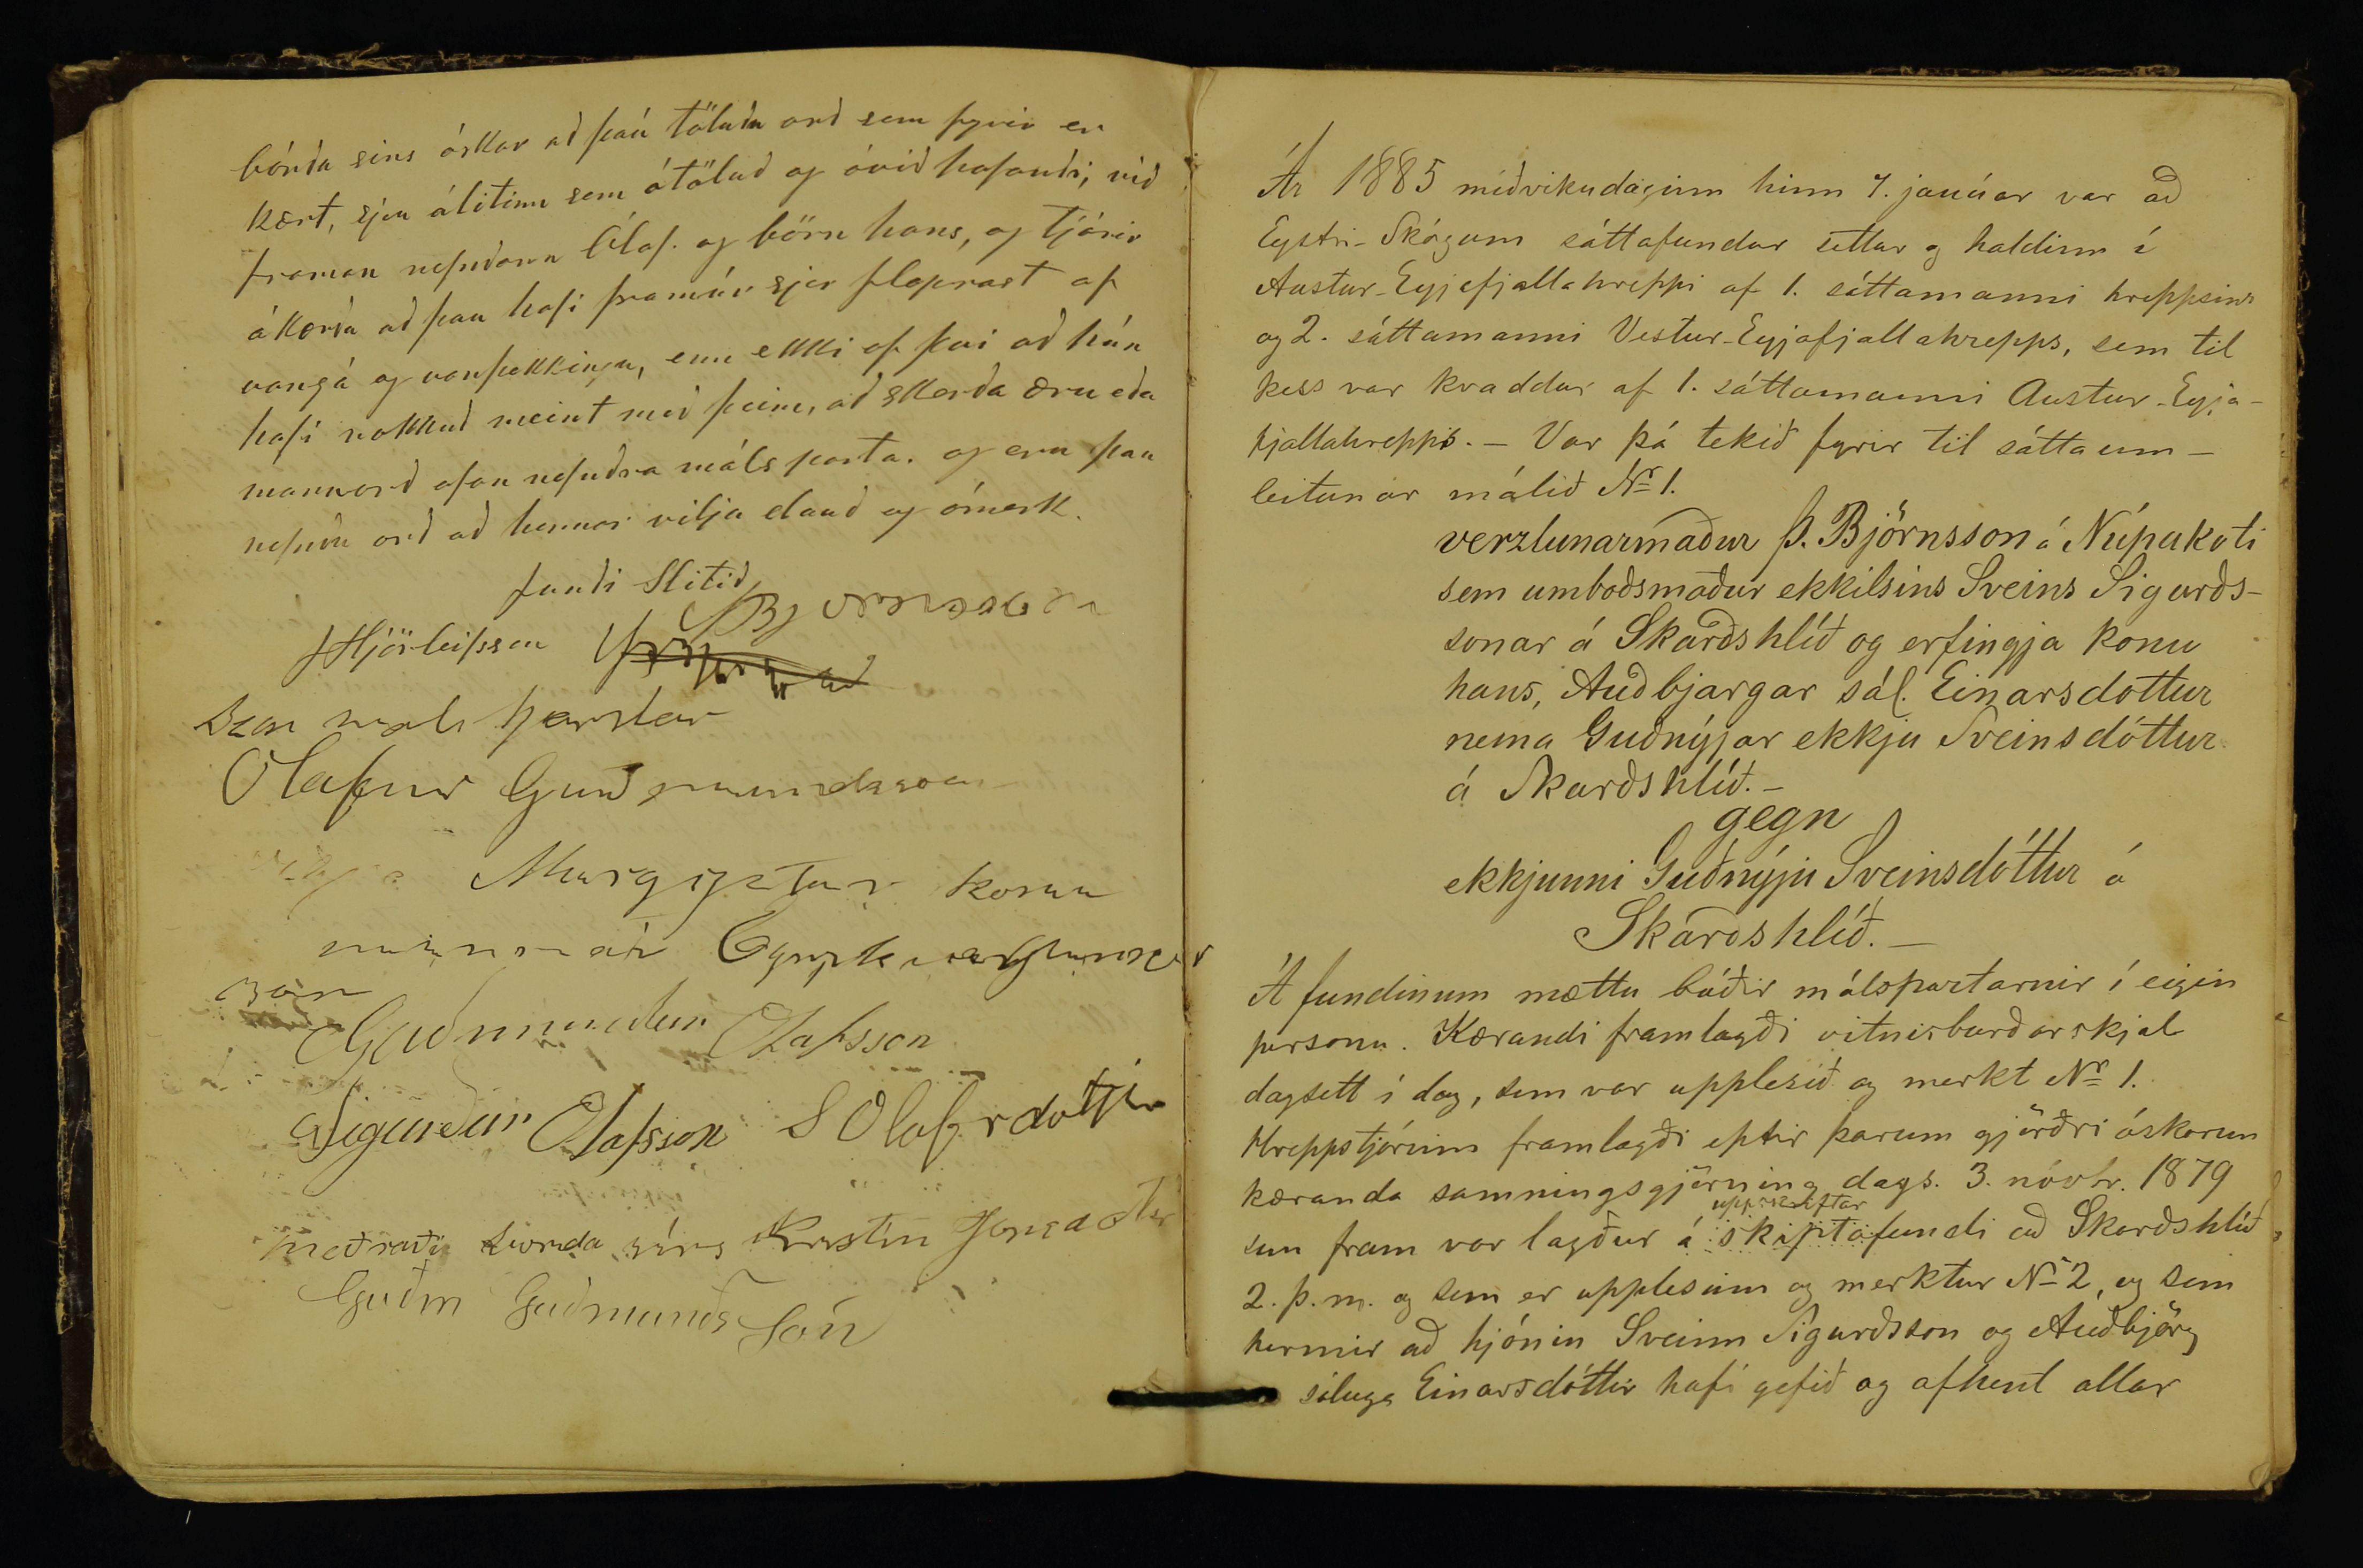 bónda sins óskar að þau töluðu orð sem fyrir er
kært, sjeu álitinn sem ótöluð og óvið hafandi, við
framan nefndann Ólaf. og börn hans, og tjáir
ákærða að þau hafi framúr sjer flaprast af
vangá og vanþekkingu, enn ekki af því að hún
hafi nokkuð meint með þeim, að skerða æru eða
mannorð ofan nefndra málsparta. og eru þau
nefndu orð að hennar vilja dauð og ómerk.
fundi Slitið
JHjörleifsson Björnsson
Sem máls partar
Olafur Guðmundsson
Margrjetar konu
minnar
son
Guðmundur Olafsson
Sigurður Olafsson S Olafsdottir
með ráði bonda síns Kristín Jonsdotter
Guðm Guðmunds Són
Ár 1885 miðvikudaginn hinn 7. janúar var að
Eystri-Skógum sáttafundur settur og haldinn í
Austur-Eyjafjallahreppi af 1. sáttamanni hreppsins
og 2. sáttamanni Vestur-Eyjafjallahrepps, sem til
þess var kvaddur af 1. sáttamanni Austur-Eyja-
fjallahrepps. — Var þá tekið fyrir til sáttaum-
leitunar málið Nr 1.
verzlunarmaður Þ. Björnsson á Núpakoti
sem umboðsmaður ekkilsins Sveins Sigurðs-
sonar á Skarðshlíð og erfingja konu
hans, Auðbjargar sál. Einarsdottur
nema Guðnýjar ekkju Sveinsdóttur
á Skarðshlíð. —
gegn
ekkjunni Guðnýju Sveinsdóttur á
Skarðshlíð. —
Á fundinum mættu báðir málspartarnir í eigin
personu. Kærandi framlagði vitnisburðarskjal
dagsett í dag, sem var upplesið og merkt Nr 1.
Hreppstjórinn framlagði eptir þarum gjörðri áskorun
kæranda samningsgjörning dags. 3. nóvbr. 1879
uppskriftar
sem fram var lagður á skiptafundi að Skarðshlíð
2. þ. m. og sem er upplesinn og merktur Nr 2, og sem
hermir að hjónin Sveinn Sigurðsson og Auðbjörg
sáluga Einarsdóttir hafi gefið og afhent allar